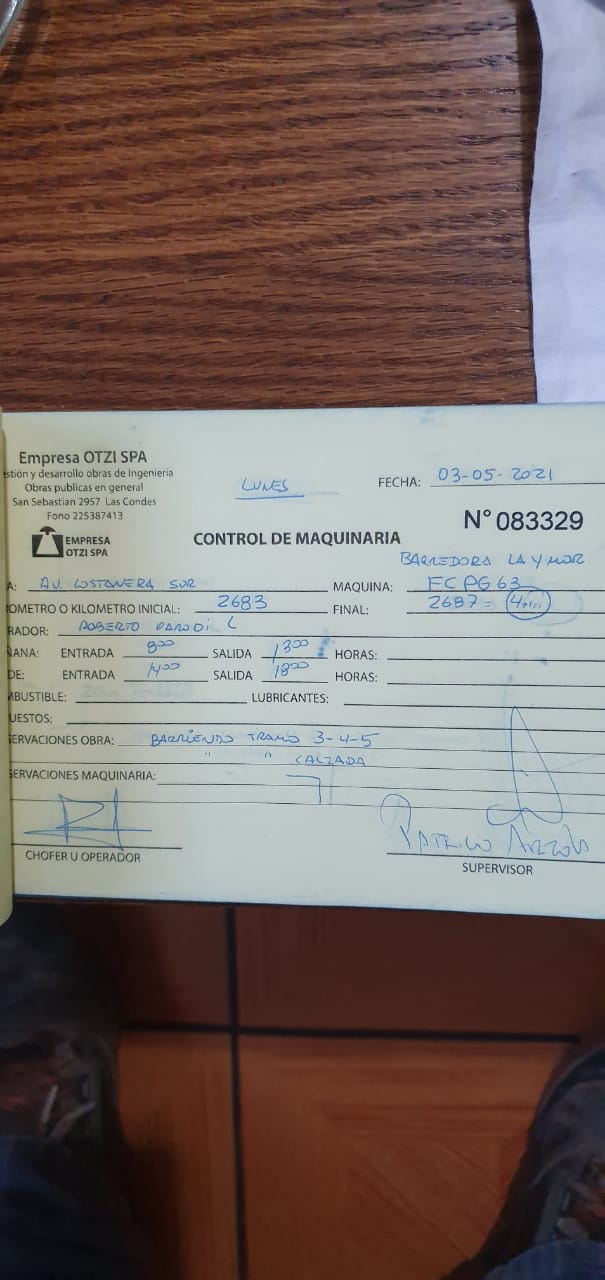 Empresa OTZI SPA
stión y desarrollo obras de Ingenieria
Obras publicas en general
San Sebastian 2957 Las Condes
Fono 225387413
EMPRESA
OTZI SPA
LUNES
FECHA: 03-05-2021
N° 083329
CONTROL DE MAQUINARIA
BARREDORA LAYMOR
A: AV. COSTANERA SUR MAQUINA: FCPG 63
OMETRO O KILOMETRO INICIAL: 2683 FINAL: 2687 =
RADOR: ROBERTO PARODI L
ÑANA: ENTRADA 8:00 SALIDA 13:00 HORAS:
DE: ENTRADA 14:00 SALIDA 18:00 HORAS:
MBUSTIBLE: LUBRICANTES:
UESTOS:
SERVACIONES OBRA: BARRIENDO TRAMO 3-4-5
" " CALZADA
SERVACIONES MAQUINARIA:
CHOFER U OPERADOR
SUPERVISOR